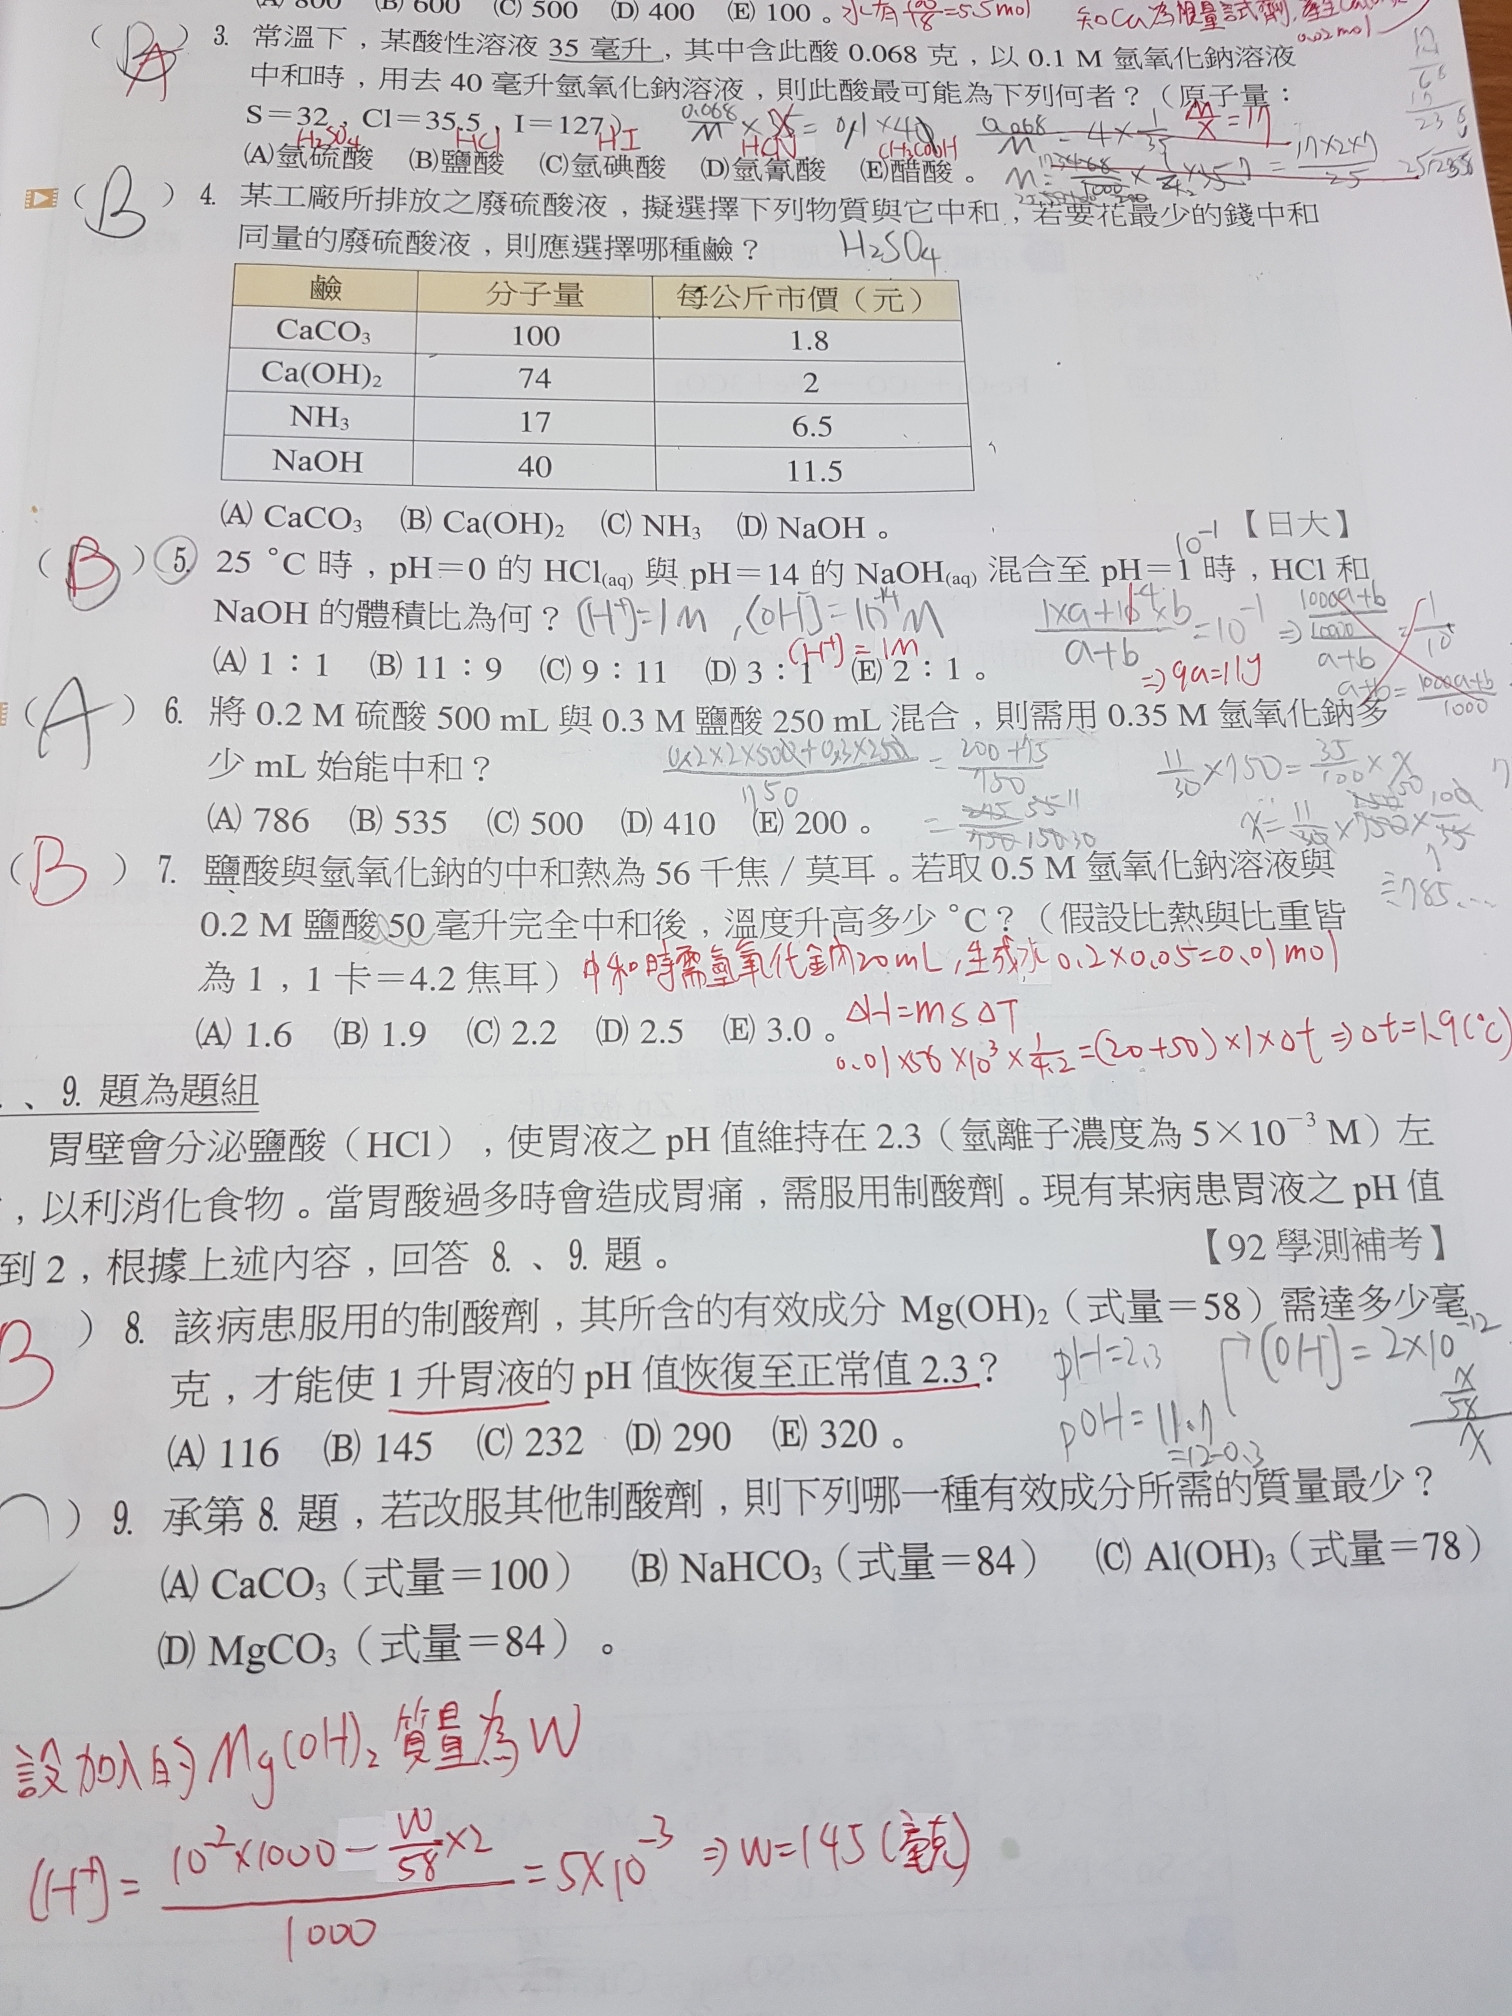 (A) 800 (B) 600 (C) 500 (D) 400 (E) 100。
3. 常溫下，某酸性溶液 35 毫升，其中含此酸 0.068 克，以 0.1 M 氫氧化鈉溶液
中和時，用去 40 毫升氫氧化鈉溶液，則此酸最可能為下列何者？（原子量：
S＝32，Cl＝35.5，I＝127）
H₂SO₄ HCl HI HCN CH₃COOH
(A)氫硫酸 (B)鹽酸 (C)氫碘酸 (D)氫氰酸 (E)醋酸。
（B）4. 某工廠所排放之廢硫酸液，擬選擇下列物質與它中和，若要花最少的錢中和
同量的廢硫酸液，則應選擇哪種鹼？ H₂SO₄
鹼 分子量 每公斤市價（元）
CaCO₃ 100 1.8
Ca(OH)₂ 74 2
NH₃ 17 6.5
NaOH 40 11.5
(A) CaCO₃ (B) Ca(OH)₂ (C) NH₃ (D) NaOH。 【日大】
（B）5. 25 °C 時，pH＝0 的 HCl(aq) 與 pH＝14 的 NaOH(aq) 混合至 pH＝1 時，HCl 和
NaOH 的體積比為何？ [H⁺]=1M , [OH⁻]=10⁻¹⁴M
[H⁺]=1M
(A) 1：1 (B) 11：9 (C) 9：11 (D) 3：1 (E) 2：1。 ⇒9a=11y
（A）6. 將 0.2 M 硫酸 500 mL 與 0.3 M 鹽酸 250 mL 混合，則需用 0.35 M 氫氧化鈉多
少 mL 始能中和？
(A) 786 (B) 535 (C) 500 (D) 410 (E) 200。
（B）7. 鹽酸與氫氧化鈉的中和熱為 56 千焦／莫耳。若取 0.5 M 氫氧化鈉溶液與
0.2 M 鹽酸 50 毫升完全中和後，溫度升高多少 °C？（假設比熱與比重皆
為 1，1 卡＝4.2 焦耳） 中和時需氫氧化鈉20mL,生成水0.2×0.05=0.01mol
(A) 1.6 (B) 1.9 (C) 2.2 (D) 2.5 (E) 3.0。 ΔH=msΔT
0.01×56×10³×1/4.2=(20+50)×1×Δt⇒Δt=1.9(°C)
、9. 題為題組
胃壁會分泌鹽酸（HCl），使胃液之 pH 值維持在 2.3（氫離子濃度為 5×10⁻³ M）左
，以利消化食物。當胃酸過多時會造成胃痛，需服用制酸劑。現有某病患胃液之 pH 值
到 2，根據上述內容，回答 8.、9. 題。 【92 學測補考】
B）8. 該病患服用的制酸劑，其所含的有效成分 Mg(OH)₂（式量＝58）需達多少毫
克，才能使 1 升胃液的 pH 值恢復至正常值 2.3？ pH=2.3 [OH⁻]=2×10⁻¹²
pOH=11.7
=12-0.3
(A) 116 (B) 145 (C) 232 (D) 290 (E) 320。
）9. 承第 8. 題，若改服其他制酸劑，則下列哪一種有效成分所需的質量最少？
(A) CaCO₃（式量＝100） (B) NaHCO₃（式量＝84） (C) Al(OH)₃（式量＝78）
(D) MgCO₃（式量＝84）。
設加入的Mg(OH)₂質量為W
[H⁺]= (10⁻²×1000－W/58×2)/1000 =5×10⁻³⇒W=145(毫克)